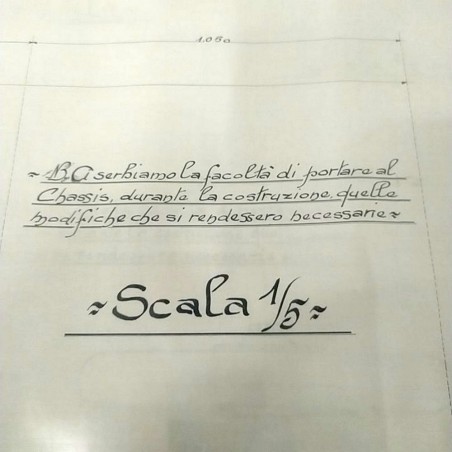 1.060
~ N.B. Ci serbiamo la facoltà di portare al
Chassis, durante la costruzione, quelle
modifiche che si rendessero necessarie ~
~ Scala 1/5 ~